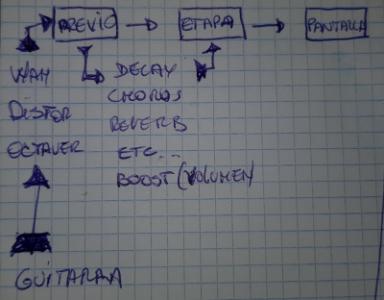 PREVIO ETAPA PANTALLA
WAH
DISTOR
OCTAVER
DECAY
CHORUS
REVERB
ETC...
BOOST (VOLUMEN)
GUITARRA